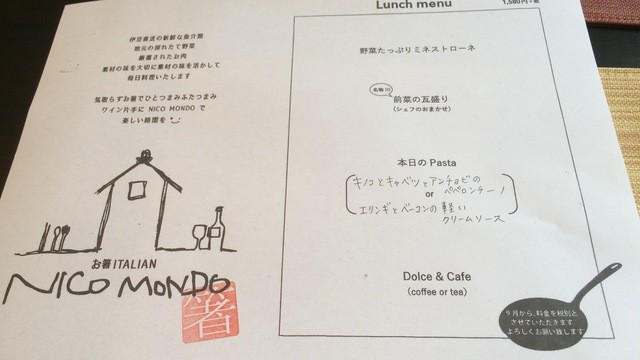 伊豆直送の新鮮な魚介類
地元の採れたて野菜
厳選されたお肉
素材の味を大切に素材の味を活かして
毎日料理いたします
気取らずお箸でひとつまみふたつまみ
ワイン片手に NICO MONDO で
楽しい時間を
お箸ITALIAN
NICO MONDO
箸
Lunch menu
1,580円+税
野菜たっぷりミネストローネ
名物!!
前菜の瓦盛り
(シェフのおまかせ)
本日の Pasta
キノコとキャベツとアンチョビの
ペペロンチーノ
or
エリンギとベーコンの軽い
クリームソース
Dolce & Cafe
(coffee or tea)
9月から、料金を税別と
させていただきます
よろしくお願い致します